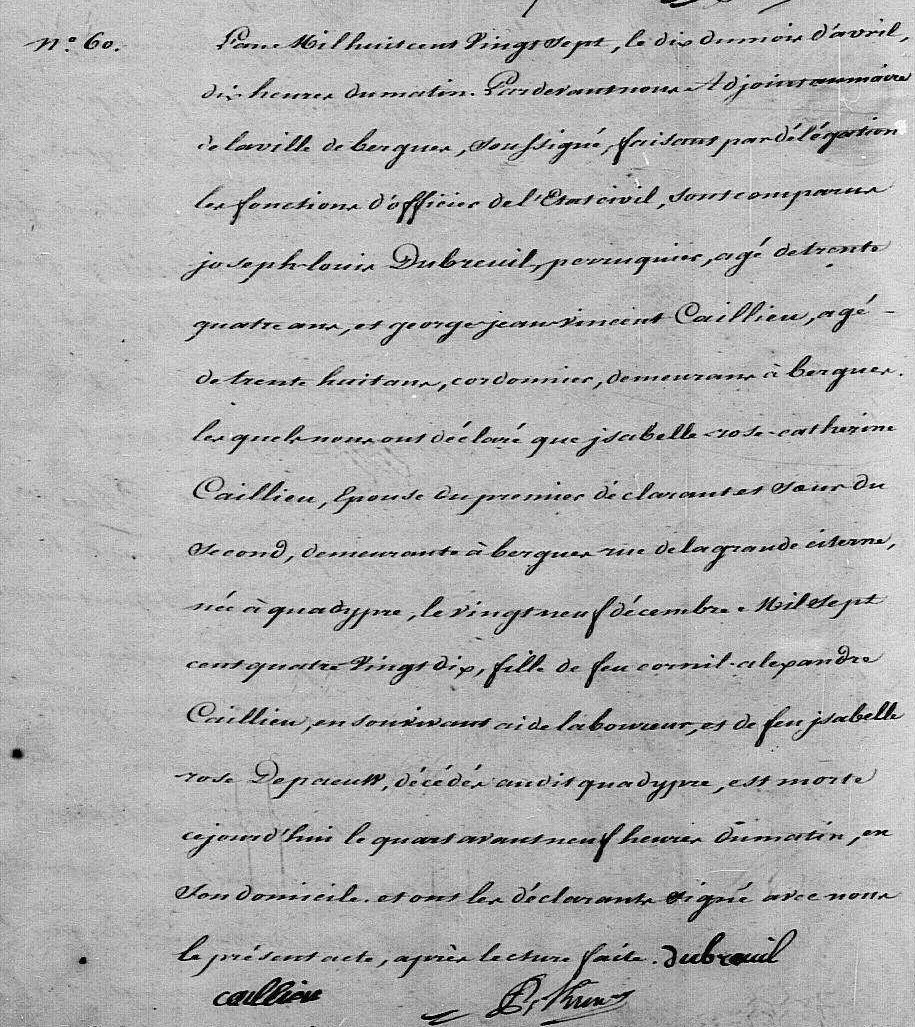 n.° 60. L'an Mil huit cent Vingt sept, le dix du mois d'avril,
dix heures du matin. Par devant nous Adjoint au maire
de la ville de bergues, soussigné, faisant par délégation
les fonctions d'officier de l'Etat civil, sont comparus
joseph-louis Dubreuil, perruquier, agé de trente
quatre ans, et george-jean-vincent Caillieu, agé -
de trente huit ans, cordonnier, demeurans à bergues.
les quels nous ont déclaré que jsabelle-rose-catherine
Caillieu, Epouse du premier déclarant et sœur du
second, demeurante à bergues rue de la grande citerne,
née à quadypre, le vingt neuf décembre Mil sept
cent quatre Vingt dix, fille de feu cornil-alexandre
Caillieu, en son vivant aide laboureur, et de feu jsabelle
rose, décédés audit quadypre, est morte
cejourd'hui le quart avant neuf heures du matin, en
son domicile. et ont les déclarants signé avec nous
le présent acte, après lecture faite. dubreuil
caillieu